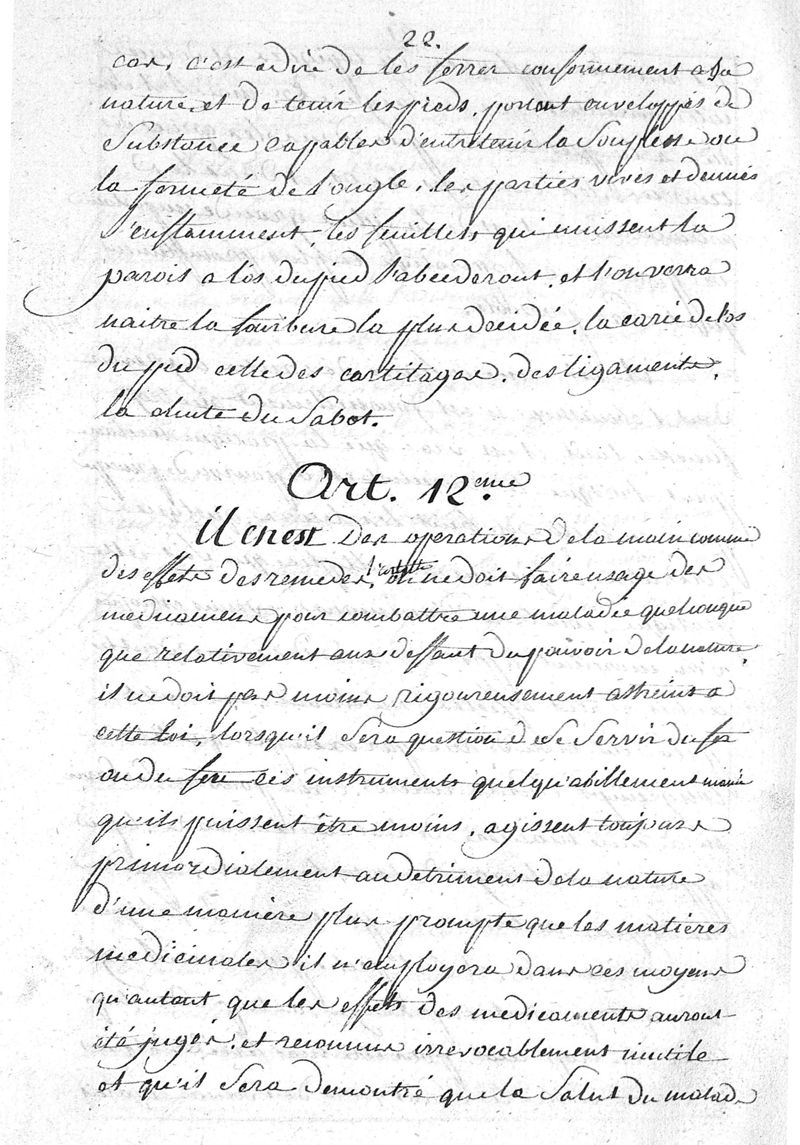 22.
cas, c'est a dire de les ferrer conformement a la
nature, et de tenir les pieds, portant enveloppés de
Substance capables d'entretenir la Souplesse ou
la fermeté de l'ongle, les parties vives et denuées
s'enflamment, les feuillets qui unissent la
parois a l'os du pied s'abcederont, et l'on verra
naitre la fourbure la plus decidée, la carie de l'os
du pied celle des cartilages, des ligaments,
la chute du Sabot.
Art. 12.eme
il en est des operations de la main comme
des effets des remedes, l'artiste ne doit faire usage des
medicamens pour combattre une maladie quelconque
que relativement aux deffaut du pouvoir de la nature,
il ne doit pas moins rigoureusement astreint a
cette loi, lorsqu'il Sera question de Se Servir du fer
ou du feu ces instruments quelqu'abillement maniés
qu'ils puissent être moins, agissent toujours
primordialement au detriment de la nature
d'une manière plus prompte que les matières
medicinales il n'employera dans ces moyens
qu'autant que les effets des medicaments auront
été jugés, et reconnus irrevocablement inutile
et qu'il Sera demontré que la Salut du malade